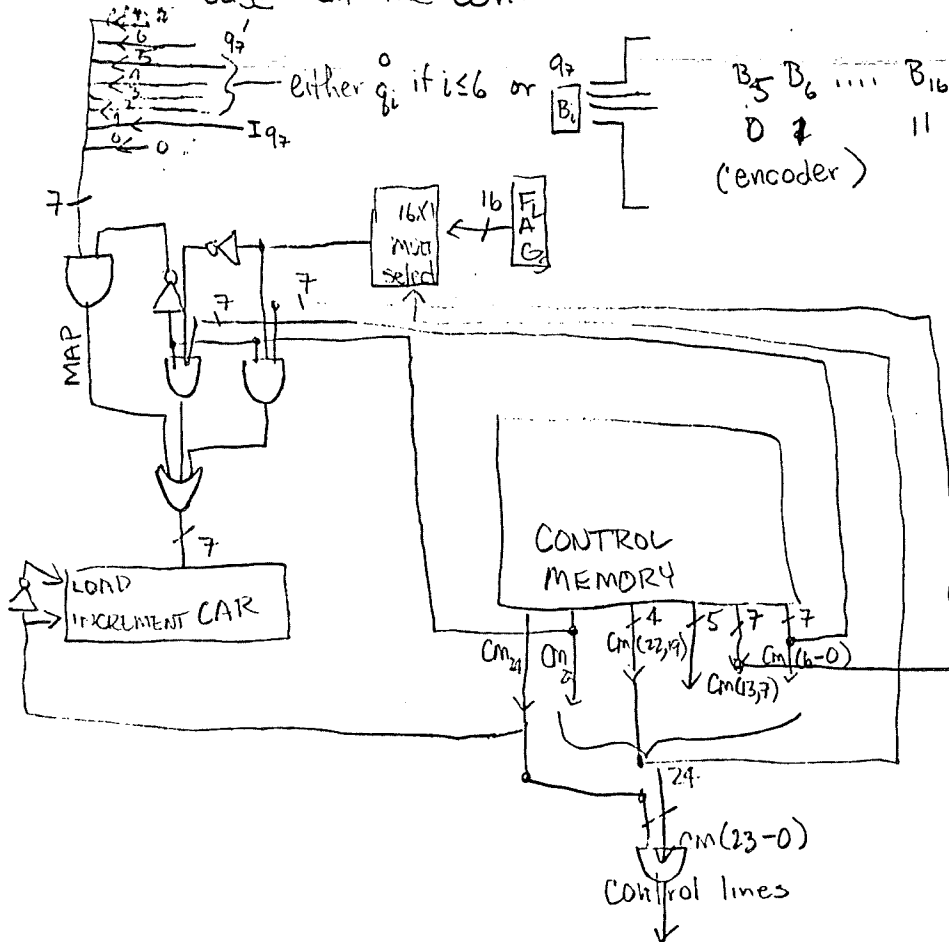 6
5
4
3
2
1
0
0
q7'
I q7
either q_i^0 if i≤6 or
q7
B_i
B5 B6 ..... B16
0 1 11
(encoder)
7
16X1
mux
select
16
FLAGS
7
7
MAP
7
LOAD
INCREMENT CAR
CONTROL
MEMORY
4
5
7
7
Cm24
Cm(22,19)
Cm(13,7)
Cm(6-0)
24
Cm(23-0)
Control lines